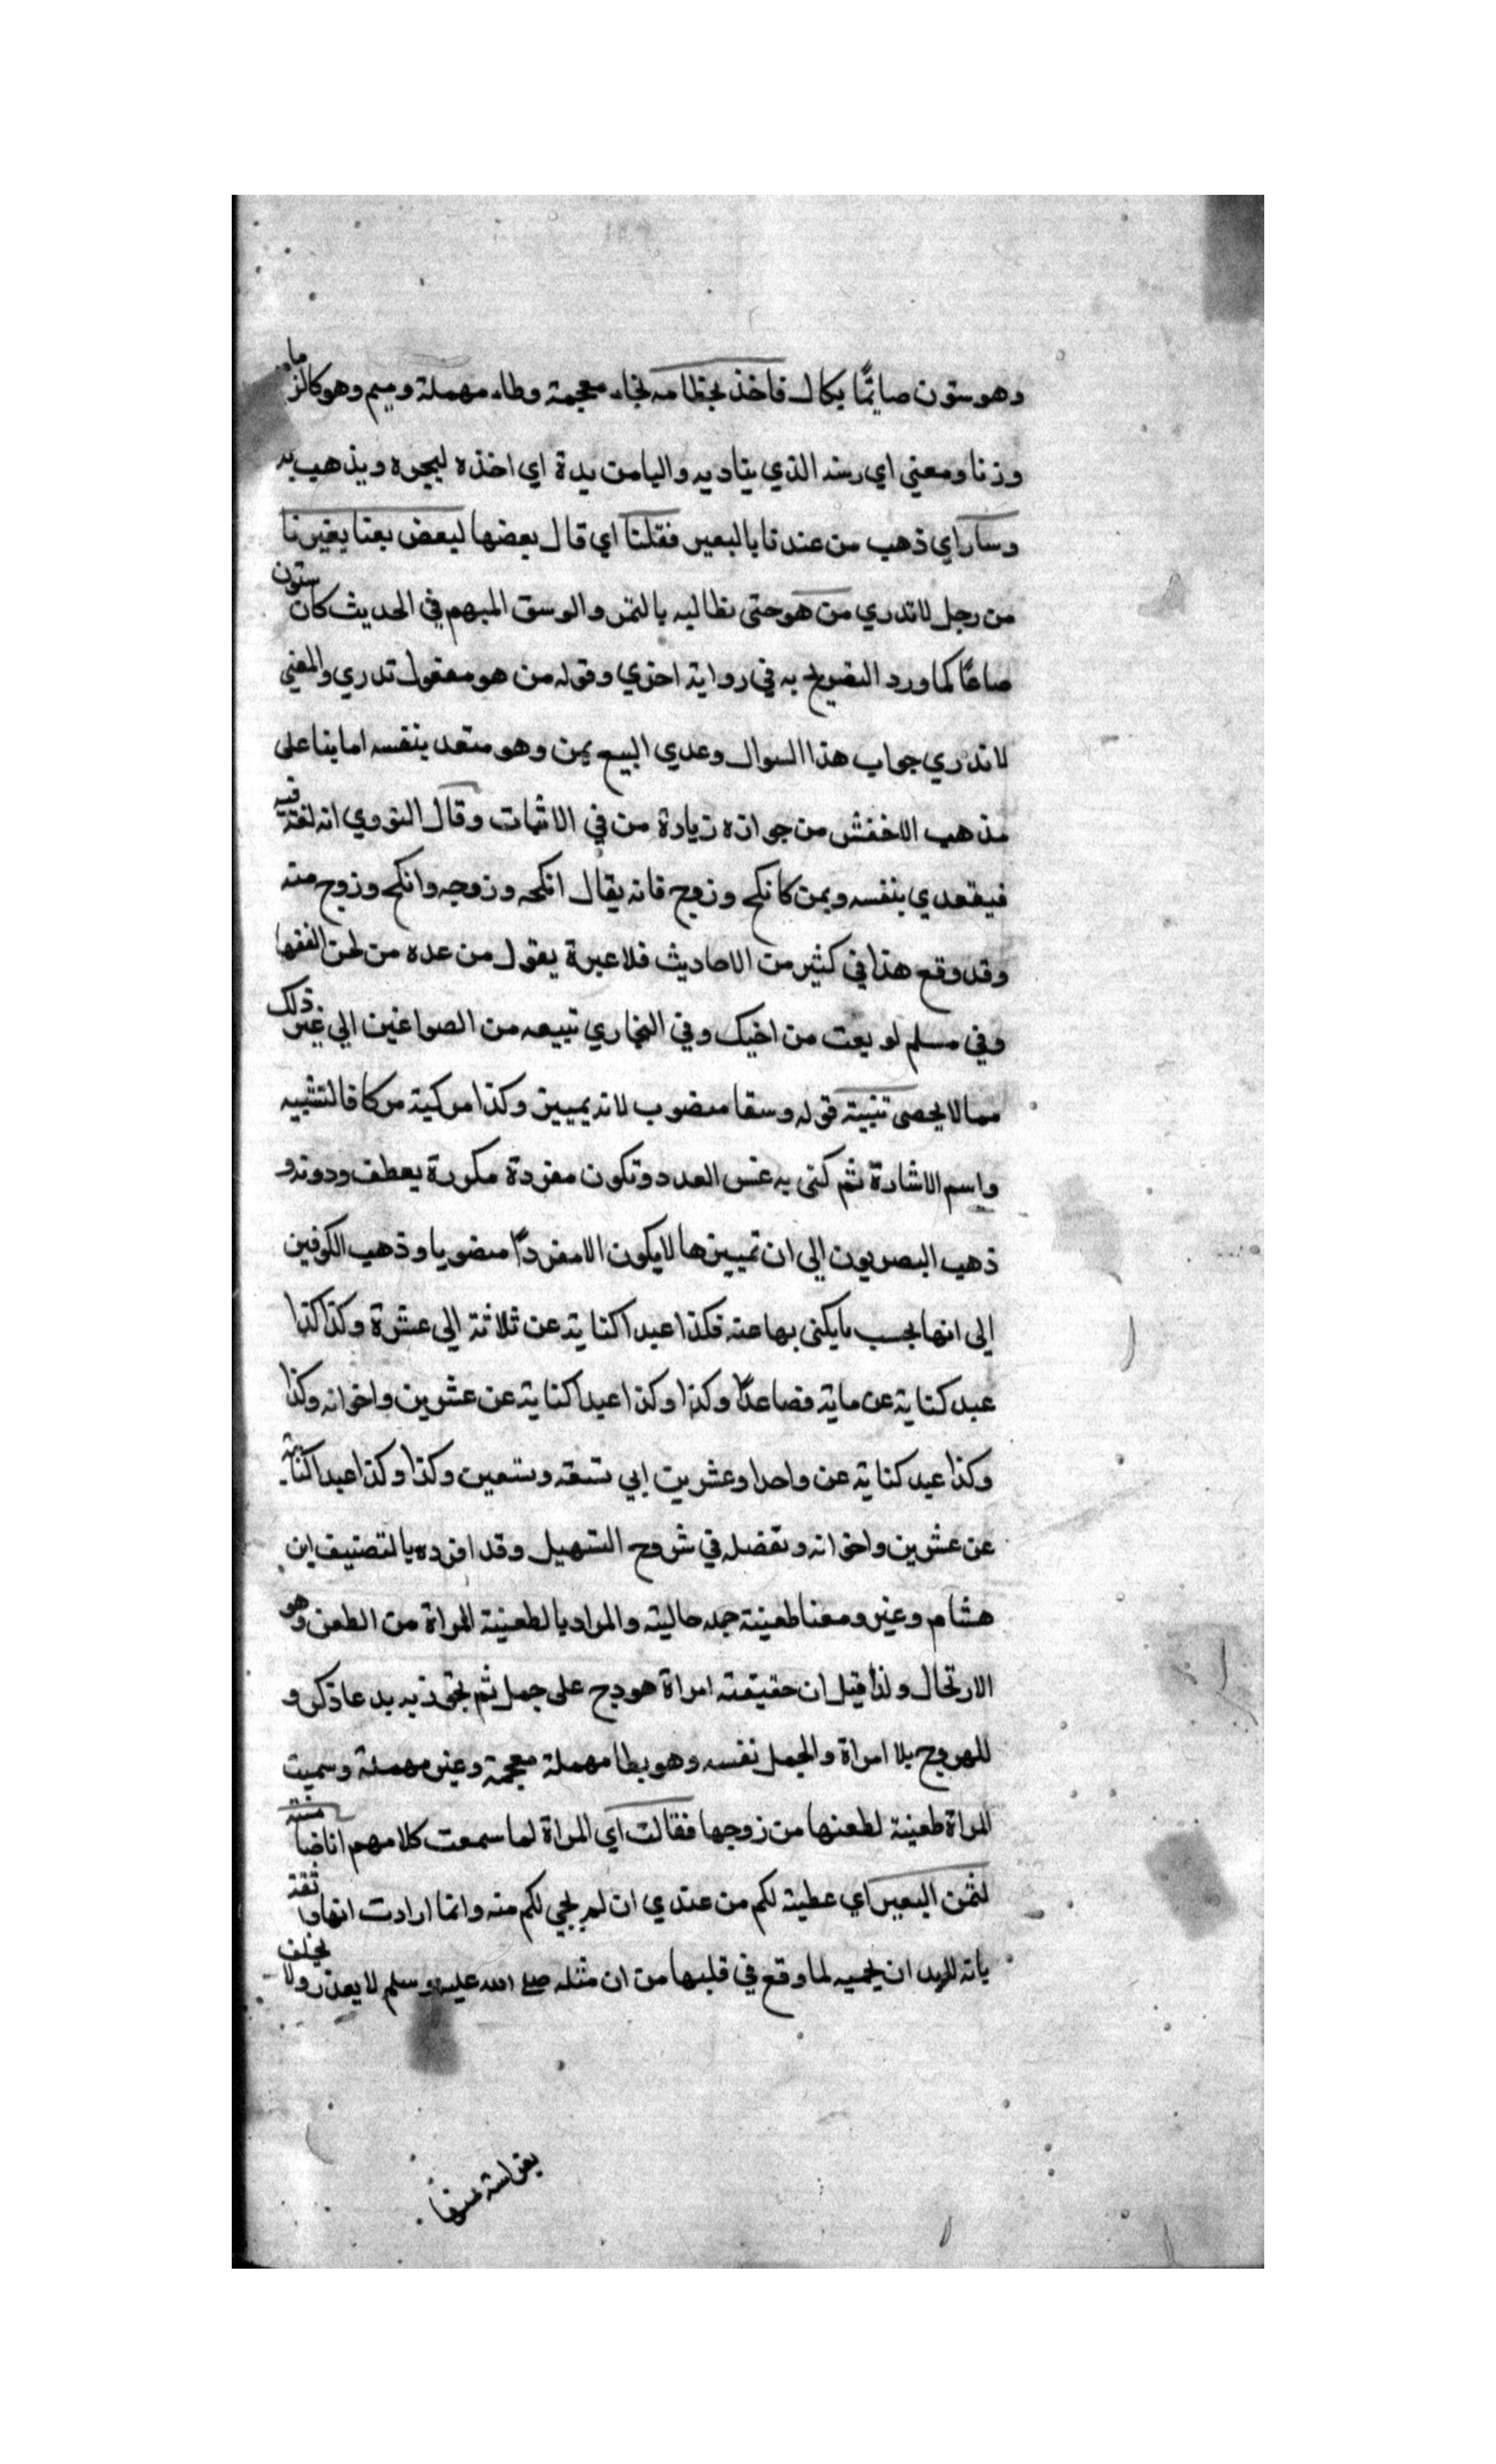 وهو ستون صايمًا يكال فاخذ بخطامه بخاء معجمة وطاء مهملة وميم وهو كالزمام
وزنا ومعني اي رسنه الذي يناديه واليا من يدة اي اخذه ليجره ويذهب به
وسار اي ذهب من عندنا بالبعير فقلنا اي قال بعضها لبعض بعنا بعيرنا
من رجل لا تدري من هو حتى نطالبه بالثمن والوسق المبهم في الحديث كان ستون
صاعًا كما ورد التصريح به في رواية اخري وقوله من هو مفعول تدري والمعني
لا تدري جواب هذا السوال وعدي البيع بمن وهو متعد بنفسه اما بنا على
مذهب الاخفش من جوازه زيادة من في الاثبات وقال النووي انه لغة فيه
فيتعدي بنفسه وبمن كانكح وزوج فانه يقال انكحه وزوجه وانكح وزوج منه
وقد وقع هذا في كثير من الاحاديث فلا عبرة بقول من عده من لحن الفقها
وفي مسلم لو بعت من اخيك وفي البخاري تبيعه من الصواغين الي غير ذلك
مما لا يحصى تنبيه قوله وسقا منصوب لانه تمييز وكذا مركبة من كاف التشبيه
واسم الاشارة ثم كنى به عن العدد وتكون مفردة مكررة بعطف ودونه و
ذهب البصريون الى ان تمييزها لا يكون الا مفردًا منصوبا وذهب الكوفين
الى انها بحسب ما يكنى بها عنه فكذا عبدا كناية عن ثلاثة الى عشرة وكذا كذا
عبد كناية عن ماية فصاعدًا وكذا وكذا عبدا كناية عن عشرين واخوانه وكذا
وكذا عبد كناية عن واحدا وعشرين الي تسعة وتسعين وكذا وكذا عبدا كناية
عن عشرين واخوانه وتفصله في شروح التسهيل وقد افرده بالتصنيف ابن
هشام وغير ومعنا طعينة جمله حالية والمراد بالطعينة المراة من الطعن وهو
الارتحال ولذا قيل ان حقيقته امراة هودج على جمل ثم تجوز به عما ذكر و
للهودج بلا امراة والجمل نفسه وهو بطا مهملة معجمة وعين مهملة وسميت
المراة طعينة لطعنها من زوجها فقالت اي المراة لما سمعت كلامهم انا ضامنة
لثمن البعير اي عطية لكم من عندي ان لم يجي لكم منه وانما ارادت انها واثقة
بانه لابد ان يجميه لما وقع في قلبها من ان مثله صلى الله عليه وسلم لا يعذر ولا يخلف